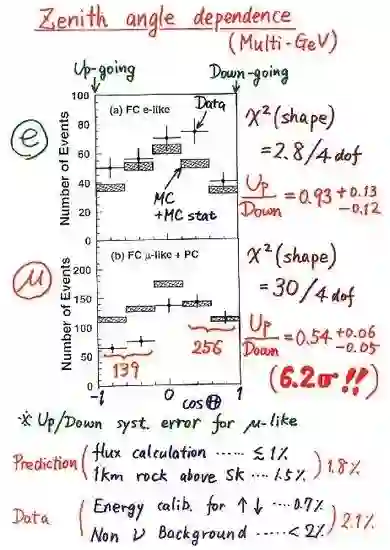 Zenith angle dependence
(Multi-GeV)
Up-going
Down-going
e
(a) FC e-like
Data
MC
+MC stat
Number of Events
100
80
60
40
20
0
χ² (shape)
= 2.8 / 4 dof
Up/Down = 0.93 +0.13 -0.12
μ
(b) FC μ-like + PC
Number of Events
200
150
100
50
0
139
256
-1 0 1
cosΘ
χ² (shape)
= 30 / 4 dof
Up/Down = 0.54 +0.06 -0.05
(6.2σ !!)
※ Up/Down syst. error for μ-like
Prediction ( flux calculation ...... ≲ 1%
1km rock above SK .... 1.5% ) 1.8%
Data ( Energy calib. for ↑ ↓ .... 0.7%
Non ν Background ...... < 2% ) 2.1%